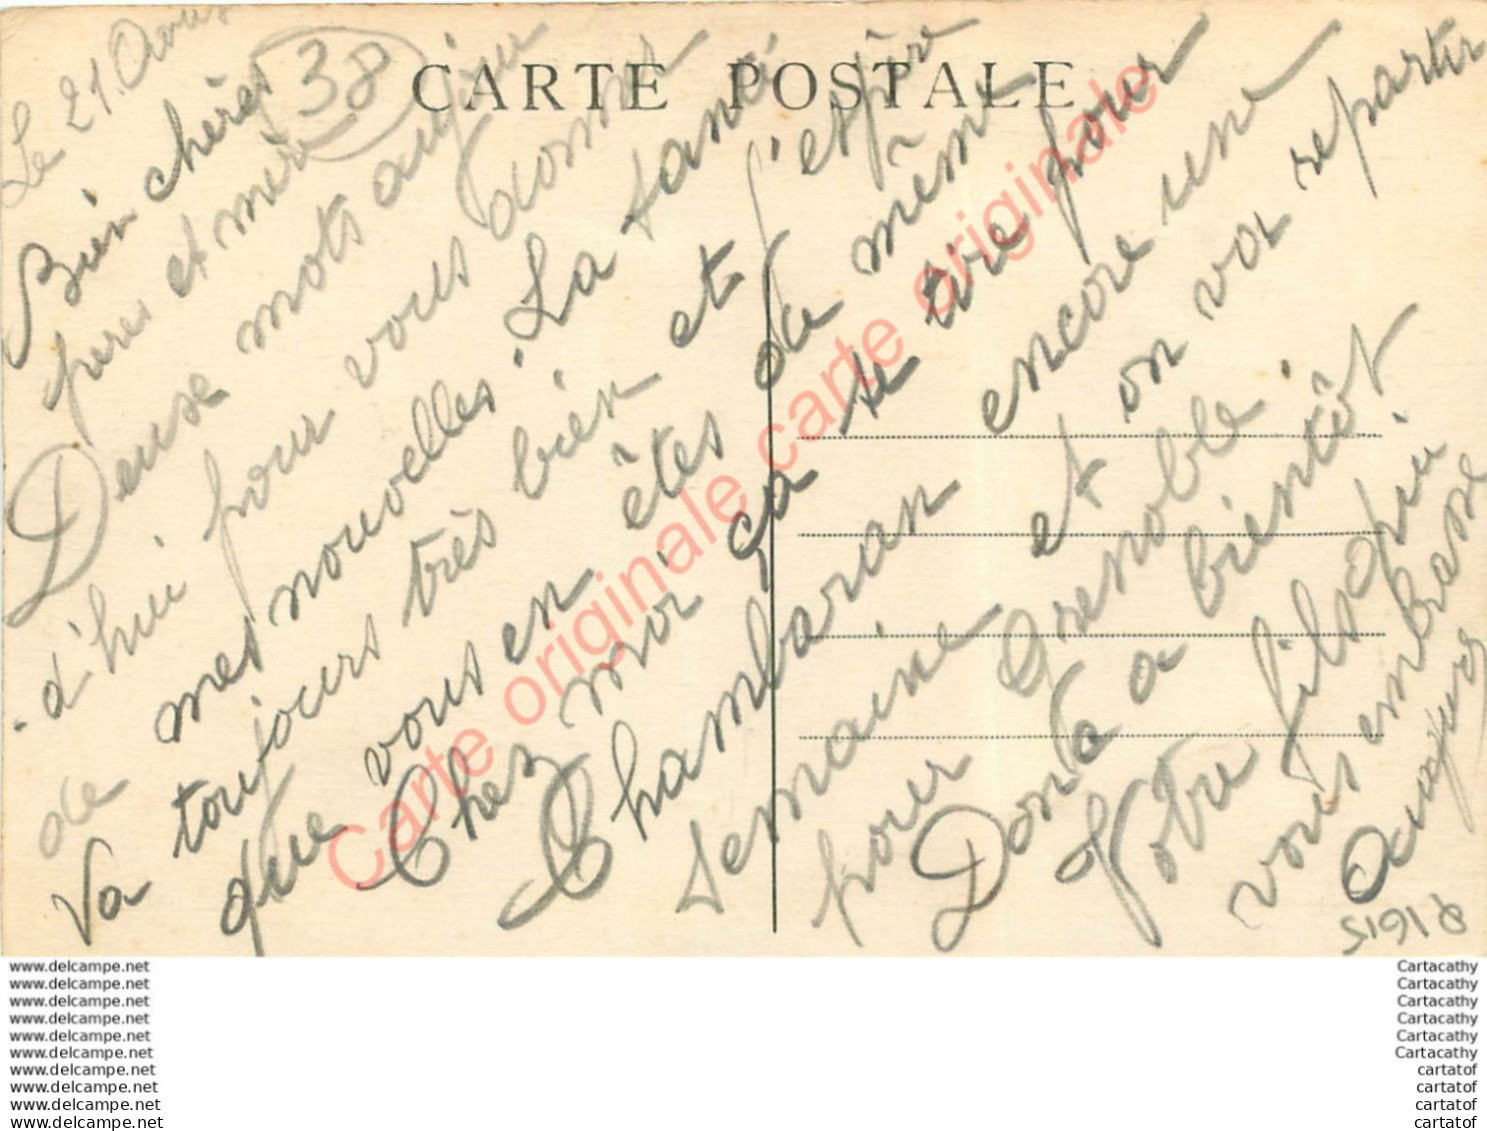 CARTE POSTALE
38
Le 21 Aout
Bien chères
pères et mère
Deuse mots aujou
d'hui pour vous donner
de mes nouvelles. La santé
Va toujours très bien et j'espère
que vous en êtes de même
Chez moi ça se tire pour
Chambaran encore une
semaine et on vor repartir
pour Grenoble.
Donc a bientôt
Votre fils qui
vous embrasse
R1615
Carte originale carte originale carte originale
www.delcampe.net
www.delcampe.net
www.delcampe.net
www.delcampe.net
www.delcampe.net
www.delcampe.net
www.delcampe.net
www.delcampe.net
www.delcampe.net
www.delcampe.net
Cartacathy
Cartacathy
Cartacathy
Cartacathy
Cartacathy
Cartacathy
cartatof
cartatof
cartatof
cartatof